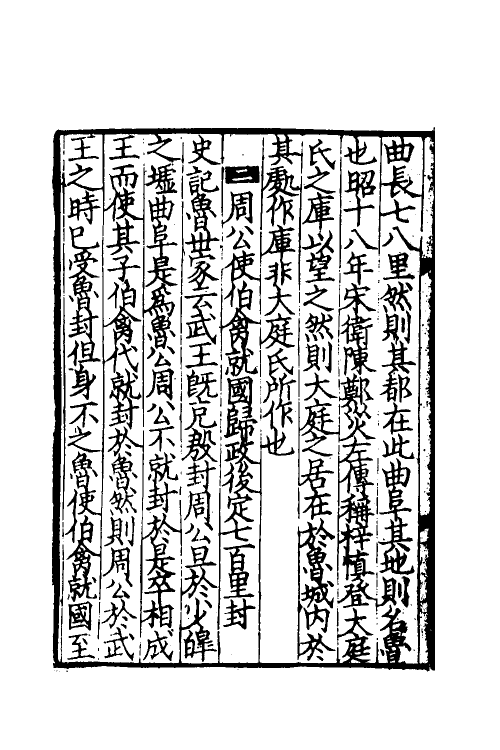 曲長七八里然則其都在此曲阜其地則名魯
也昭十八年宋衛陳鄭災左傳稱梓慎登大庭
氏之庫以望之然則大庭之居在於魯城內於
其處作庫非大庭氏所作也
二周公使伯禽就國歸政後定七百里封
史記魯世家云武王既克殷封周公旦於少皞
之墟曲阜是為魯公周公不就封於是卒相成
王而使其子伯禽代就封於魯然則周公於武
王之時已受魯封但身不之魯使伯禽就國至